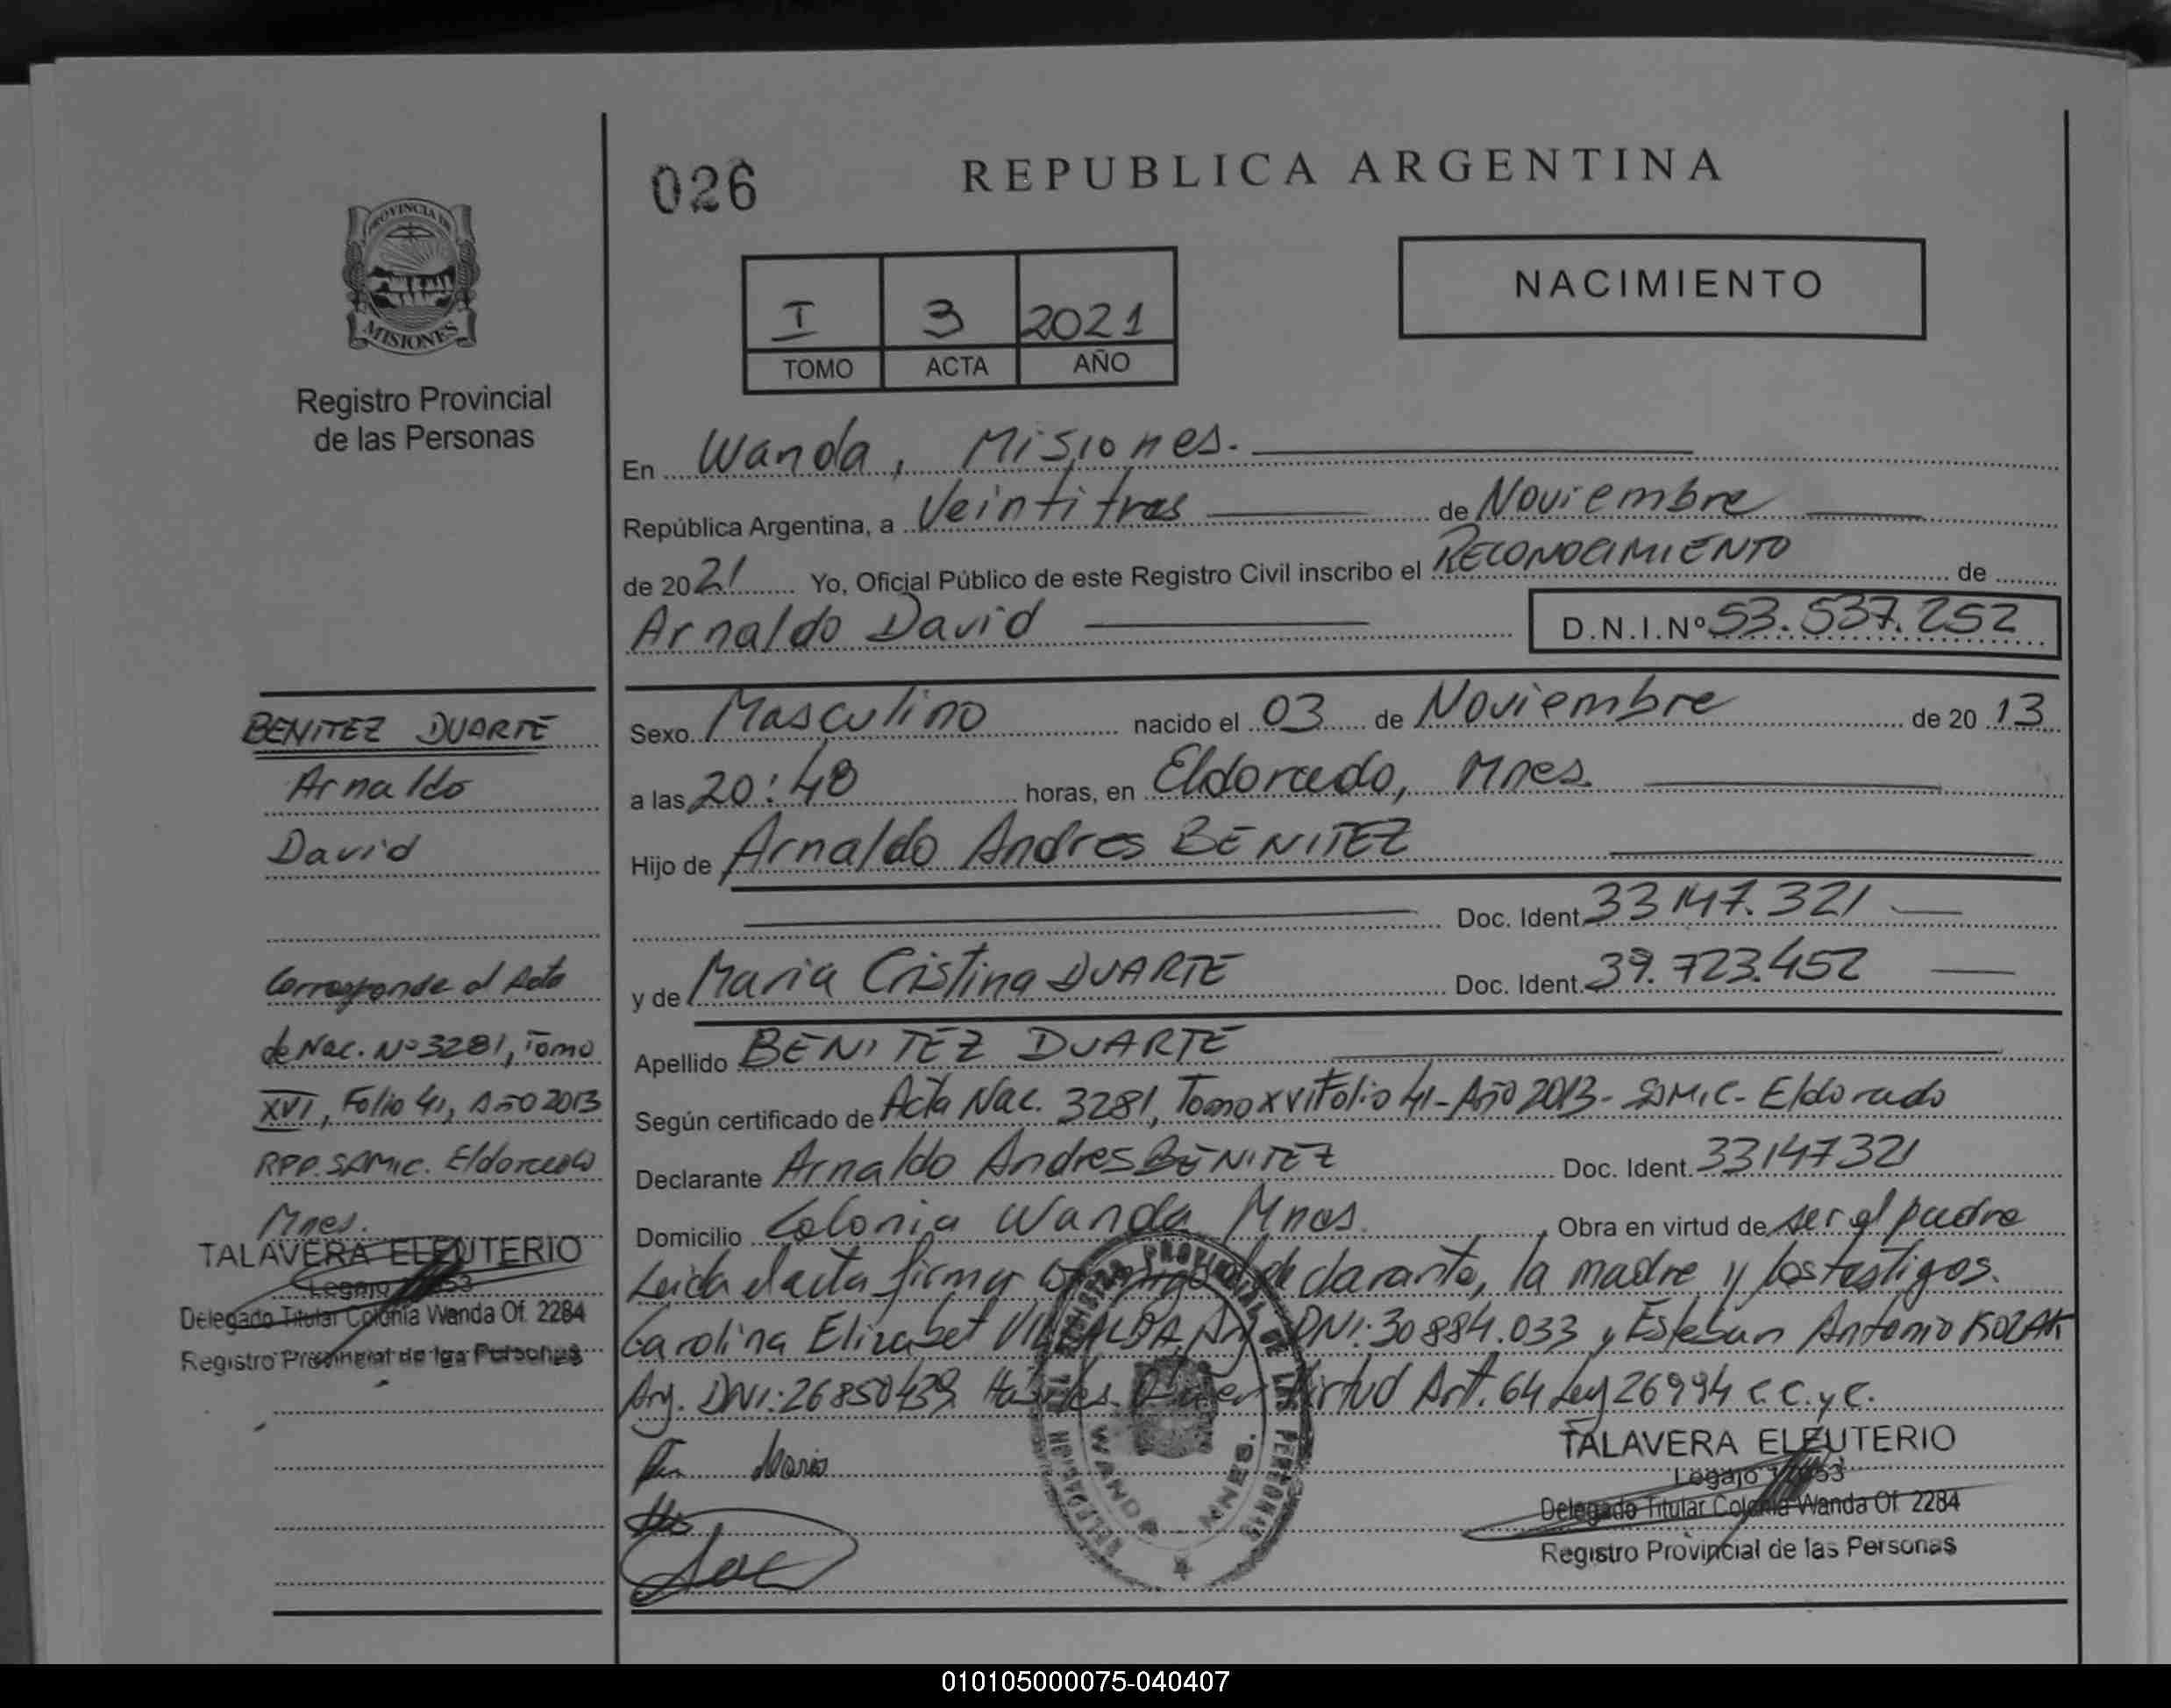 026
REPUBLICA ARGENTINA
PROVINCIA DE
MISIONES
Registro Provincial
de las Personas
I 3 2021
TOMO ACTA AÑO
NACIMIENTO
En Wanda, Misiones.
República Argentina, a Veintitres de Noviembre
de 2021 Yo, Oficial Público de este Registro Civil inscribo el RECONOCIMIENTO de
Arnaldo David D.N.I.Nº 53.537.252
Sexo Masculino nacido el 03 de Noviembre de 2013
a las 20:48 horas, en Eldorado, Mnes.
Hijo de Arnaldo Andres BENITEZ
Doc. Ident. 33147.321
y de Maria Cristina DUARTE Doc. Ident. 39.723.452
Apellido BENITEZ DUARTE
Según certificado de Acta Nac. 3281, Tomo XVI Folio 41 - Año 2013 - SAMIC - Eldorado
Declarante Arnaldo Andres BENITEZ Doc. Ident. 33147321
Domicilio Colonia Wanda Mnes. Obra en virtud de ser el padre
Leida el acta firman declarante, la madre y los testigos.
Carolina Elizabet VILLALBA, Arg. DNI: 30884.033 y Esteban Antonio KOZAK
Arg. DNI: 26850439 Habiles. Virtud Art. 64 Ley 26994 C.C. y C.
TALAVERA ELEUTERIO
Legajo
Delegado Titular Colonia Wanda Of. 2284
Registro Provincial de las Personas
BENITEZ DUARTE
Arnaldo
David
Corresponde al Acta
de Nac. Nº 3281, Tomo
XVI, Folio 41, Año 2013
RPP. SAMIC. Eldorado
Mnes.
TALAVERA ELEUTERIO
Legajo
Delegado Titular Colonia Wanda Of. 2284
Registro Provincial de las Personas
WANDA MNES.
010105000075-040407